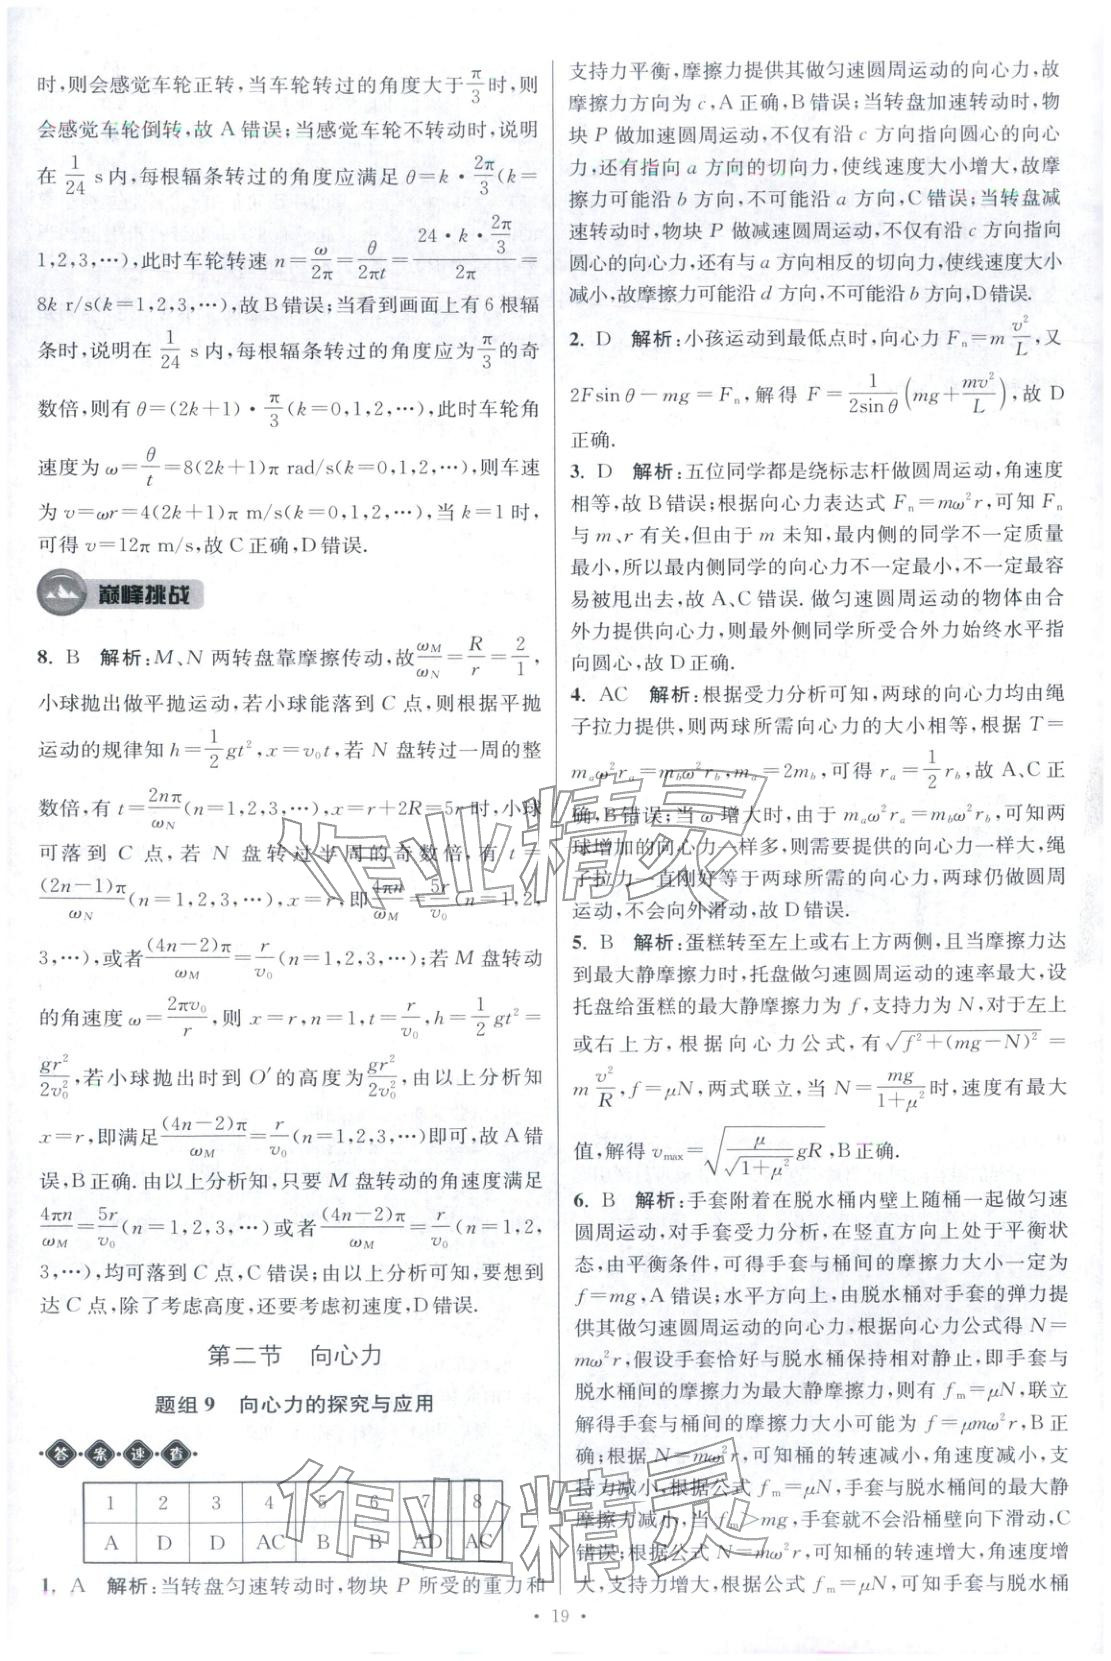 时,则会感觉车轮正转,当车轮转过的角度大于π/3时,则
会感觉车轮倒转,故 A 错误;当感觉车轮不转动时,说明
在 1/24 s内,每根辐条转过的角度应满足 θ=k·2π/3(k=
1,2,3,…),此时车轮转速 n=ω/2π=θ/2πt=(24·k·2π/3)/2π=
8k r/s(k=1,2,3,…),故 B 错误;当看到画面上有 6 根辐
条时,说明在 1/24 s内,每根辐条转过的角度应为 π/3 的奇
数倍,则有 θ=(2k+1)·π/3(k=0,1,2,…),此时车轮角
速度为 ω=θ/t=8(2k+1)π rad/s(k=0,1,2,…),则车速
为 v=ωr=4(2k+1)π m/s(k=0,1,2,…),当 k=1 时,
可得 v=12π m/s,故 C 正确,D 错误.
巅峰挑战
8. B 解析:M、N 两转盘靠摩擦传动,故ω_M/ω_N=R/r=2/1,
小球抛出做平抛运动,若小球能落到 C 点,则根据平抛
运动的规律知 h=1/2gt²,x=v₀t,若 N 盘转过一周的整
数倍,有 t=2nπ/ω_N(n=1,2,3,…),x=r+2R=5r时,小球
可落到 C 点,若 N 盘转过半周的奇数倍,有 t=
(2n-1)π/ω_N(n=1,2,3,…),x=r,即4πn/ω_M=5r/v₀(n=1,2,
3,…),或者(4n-2)π/ω_M=r/v₀(n=1,2,3,…);若 M 盘转动
的角速度 ω=2πv₀/r,则 x=r,n=1,t=r/v₀,h=1/2gt²=
gr²/2v₀²,若小球抛出时到 O′的高度为gr²/2v₀²,由以上分析知
x=r,即满足(4n-2)π/ω_M=r/v₀(n=1,2,3,…)即可,故 A 错
误,B 正确. 由以上分析知,只要 M 盘转动的角速度满足
4πn/ω_M=5r/v₀(n=1,2,3,…)或者(4n-2)π/ω_M=r/v₀(n=1,2,
3,…),均可落到 C 点,C 错误;由以上分析可知,要想到
达 C 点,除了考虑高度,还要考虑初速度,D 错误.
第二节 向心力
题组 9 向心力的探究与应用
答案速查
1 2 3 4 5 6 7 8
A D D AC B B AD AC
1. A 解析:当转盘匀速转动时,物块 P 所受的重力和
支持力平衡,摩擦力提供其做匀速圆周运动的向心力,故
摩擦力方向为 c,A 正确,B 错误;当转盘加速转动时,物
块 P 做加速圆周运动,不仅有沿 c 方向指向圆心的向心
力,还有指向 a 方向的切向力,使线速度大小增大,故摩
擦力可能沿 b 方向,不可能沿 a 方向,C 错误;当转盘减
速转动时,物块 P 做减速圆周运动,不仅有沿 c 方向指向
圆心的向心力,还有与 a 方向相反的切向力,使线速度大小
减小,故摩擦力可能沿 d 方向,不可能沿 b 方向,D 错误.
2. D 解析:小孩运动到最低点时,向心力 Fₙ=m v²/L,又
2Fsin θ-mg=Fₙ,解得 F=1/2sin θ(mg+mv²/L),故 D
正确.
3. D 解析:五位同学都是绕标志杆做圆周运动,角速度
相等,故 B 错误;根据向心力表达式 Fₙ=mω²r,可知 Fₙ
与 m、r 有关,但由于 m 未知,最内侧的同学不一定质量
最小,所以最内侧同学的向心力不一定最小,不一定最容
易被甩出去,故 A、C 错误. 做匀速圆周运动的物体由合
外力提供向心力,则最外侧同学所受合外力始终水平指
向圆心,故 D 正确.
4. AC 解析:根据受力分析可知,两球的向心力均由绳
子拉力提供,则两球所需向心力的大小相等,根据 T=
mₐω²rₐ=m_bω²r_b,mₐ=2m_b,可得 rₐ=1/2r_b,故 A、C 正
确,B 错误;当 ω 增大时,由于 mₐω²rₐ=m_bω²r_b,可知两
球增加的向心力一样多,则需要提供的向心力一样大,绳
子拉力一直刚好等于两球所需的向心力,两球仍做圆周
运动,不会向外滑动,故 D 错误.
5. B 解析:蛋糕转至左上或右上方两侧,且当摩擦力达
到最大静摩擦力时,托盘做匀速圆周运动的速率最大,设
托盘给蛋糕的最大静摩擦力为 f,支持力为 N,对于左上
或右上方,根据向心力公式,有√(f²+(mg-N)²)=
m v²/R,f=μN,两式联立,当 N=mg/(1+μ²)时,速度有最大
值,解得 v_max=√(μ/√(1+μ²) gR),B 正确.
6. B 解析:手套附着在脱水桶内壁上随桶一起做匀速
圆周运动,对手套受力分析,在竖直方向上处于平衡状
态,由平衡条件,可得手套与桶间的摩擦力大小一定为
f=mg,A 错误;水平方向上,由脱水桶对手套的弹力提
供其做匀速圆周运动的向心力,根据向心力公式得 N=
mω²r,假设手套恰好与脱水桶保持相对静止,即手套与
脱水桶间的摩擦力为最大静摩擦力,则有 fₘ=μN,联立
解得手套与桶间的最大静摩擦力大小可能为 f=μmω²r,B 正
确;根据 N=mω²r,可知桶的转速减小,角速度减小,支
持力减小,根据公式 fₘ=μN,手套与脱水桶间的最大静
摩擦力减小,当 fₘ>mg,手套就不会沿桶壁向下滑动,C
错误;根据公式 N=mω²r,可知桶的转速增大,角速度增
大,支持力增大,根据公式 fₘ=μN,可知手套与脱水桶
·19·
作业精灵
作业精灵